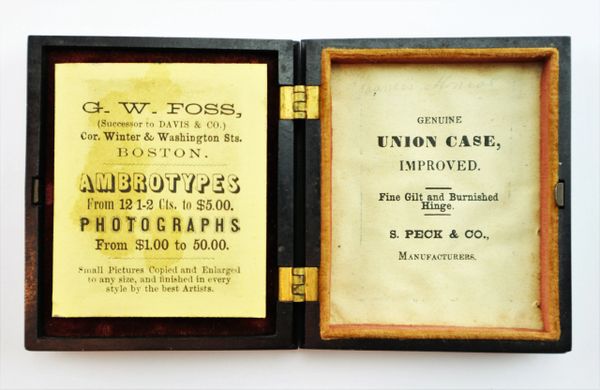 G. W. FOSS,
(Successor to DAVIS & CO.)
Cor. Winter & Washington Sts.
BOSTON.
AMBROTYPES
From 12 1-2 Cts. to $5.00.
PHOTOGRAPHS
From $1.00 to 50.00.
Small Pictures Copied and Enlarged
to any size, and finished in every
style by the best Artists.
GENUINE
UNION CASE,
IMPROVED.
Fine Gilt and Burnished
Hinge.
S. PECK & CO.,
MANUFACTURERS.